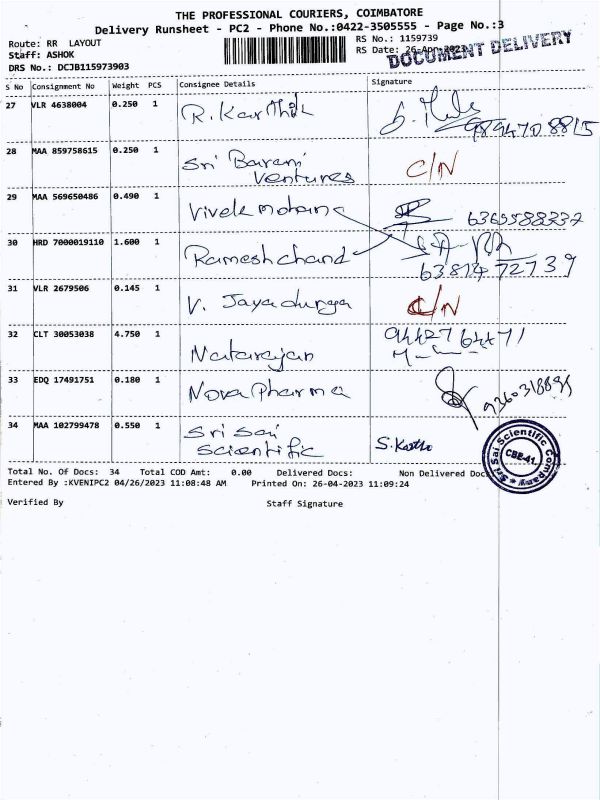 THE PROFESSIONAL COURIERS, COIMBATORE
Delivery Runsheet - PC2 - Phone No.:0422-3505555 - Page No.:3
Route: RR LAYOUT
RS No.: 1159739
Staff: ASHOK
RS Date: 26-Apr-2023
DOCUMENT DELIVERY
DRS No.: DCJB115973903
S No Consignment No Weight PCS Consignee Details Signature
27 VLR 4638004 0.250 1 R. Karthik
28 MAA 859758615 0.250 1 Sri Barani Ventures C/N
29 MAA 569650486 0.490 1 Vivek mohana
30 HRD 7000019110 1.600 1 Rameshchand 6381472739
31 VLR 2679506 0.145 1 V. Jayadurga C/N
32 CLT 30053038 4.750 1 Natarajan
33 EDQ 17491751 0.180 1 Nova Pharma
34 MAA 102799478 0.550 1 Sri Sai Scientific
Sri Sai Scientific Company CBE-41
Total No. Of Docs: 34 Total COD Amt: 0.00 Delivered Docs: Non Delivered Doc
Entered By :KVENIPC2 04/26/2023 11:08:48 AM Printed On: 26-04-2023 11:09:24
Verified By Staff Signature